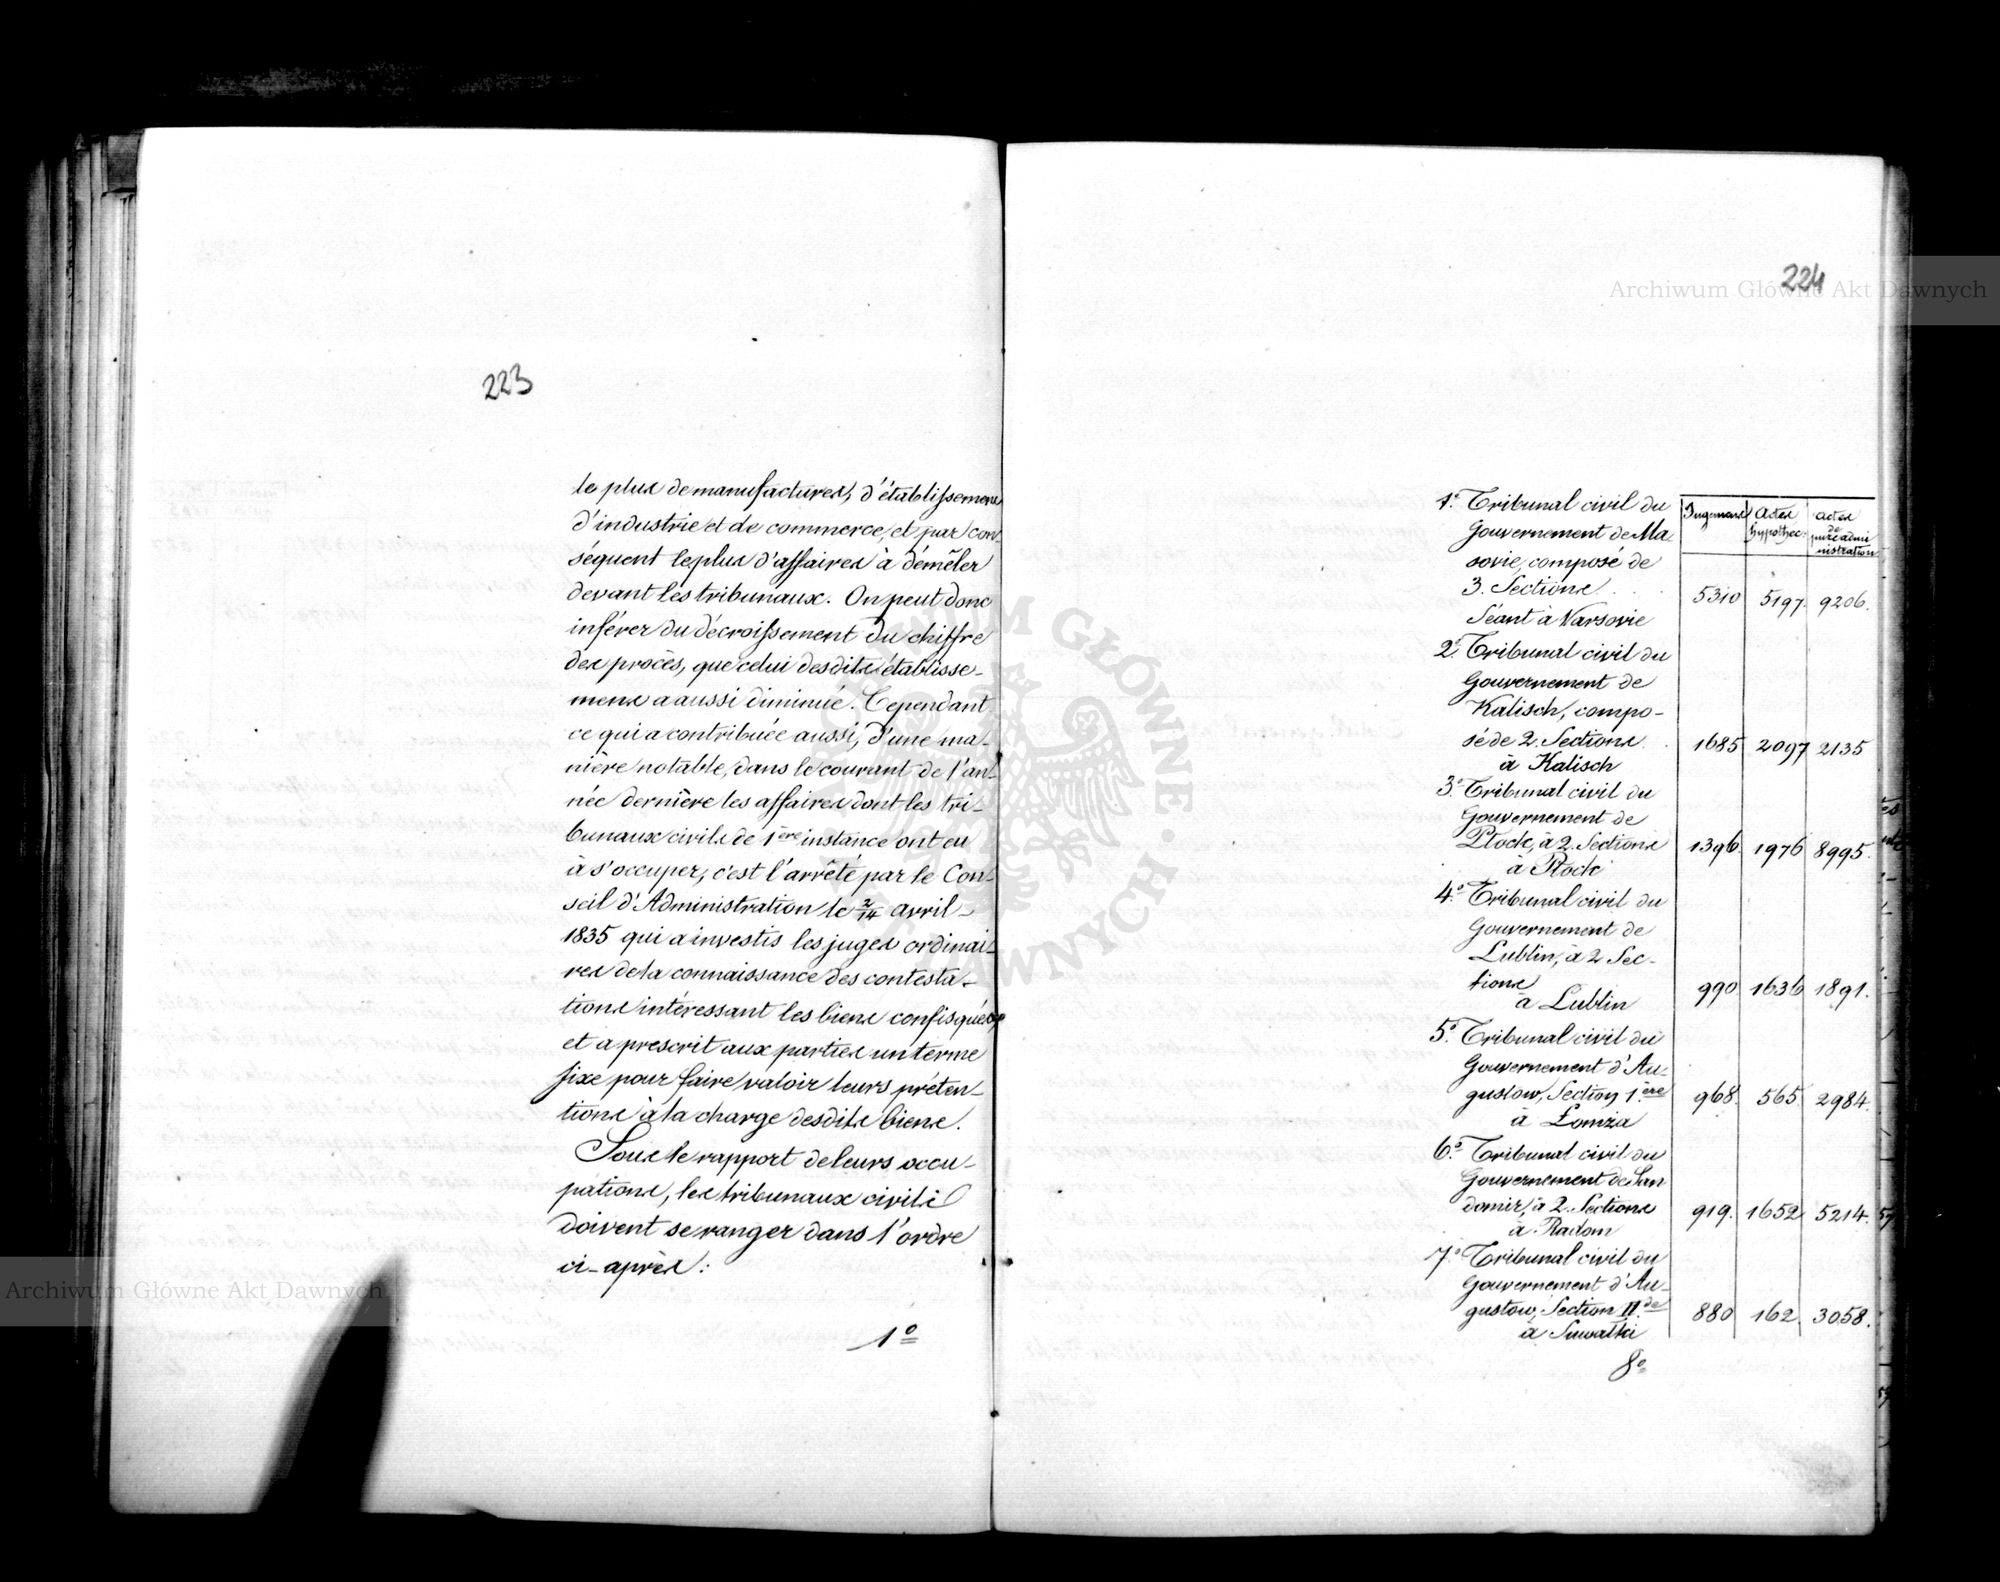 223
le plus de manufactures, d'établissemens
d'industrie et de commerce, et par con-
séquent le plus d'affaires à démêler
devant les tribunaux. On peut donc
inférer du décroissement du chiffre
des procès, que celui desdits établisse-
mens a aussi diminué. Cependant
ce qui a contribuée aussi, d'une ma-
nière notable, dans le courant de l'an-
née dernière les affaires dont les tri-
bunaux civils de 1ère instance ont eu
à s'occuper, c'est l'arrêté par le Con-
seil d'Administration le 2/14 avril
1835 qui a investis les juges ordinai-
res de la connaissance des contesta-
tions intéressant les biens confisqués,
et a prescrit aux parties un terme
fixe pour faire valoir leurs préten-
tions à la charge desdits biens.
Sous le rapport de leurs occu-
pations, les tribunaux civils
doivent se ranger dans l'ordre
ci-après:
1º
224
Jugemens Actes hypothec: Actes de pure admi nistration
1º Tribunal civil du
Gouvernement de Ma-
sovie, composé de
3. Sections . . 5310 5197. 9206.
Séant à Varsovie
2º Tribunal civil du
Gouvernement de
Kalisch, compo-
sé de 2. Sections . 1685 2097 2135
à Kalisch
3º Tribunal civil du
Gouvernement de
Plock, à 2. Sections 1396. 1976 8995.
à Plock
4º Tribunal civil du
Gouvernement de
Lublin, à 2 Sec-
tions 990. 1636 1891.
à Lublin
5º Tribunal civil du
Gouvernement d'Au-
gustow, Section 1.ère 968. 565. 2984.
à Łomża
6º Tribunal civil du
Gouvernement de San
domir, à 2. Sections 919. 1652 5214.
à Radom
7º Tribunal civil du
Gouvernement d'Au-
gustow, Section II.de 880 162. 3058.
à Suwałki
8º
Archiwum Główne Akt Dawnych
Archiwum Główne Akt Dawnych